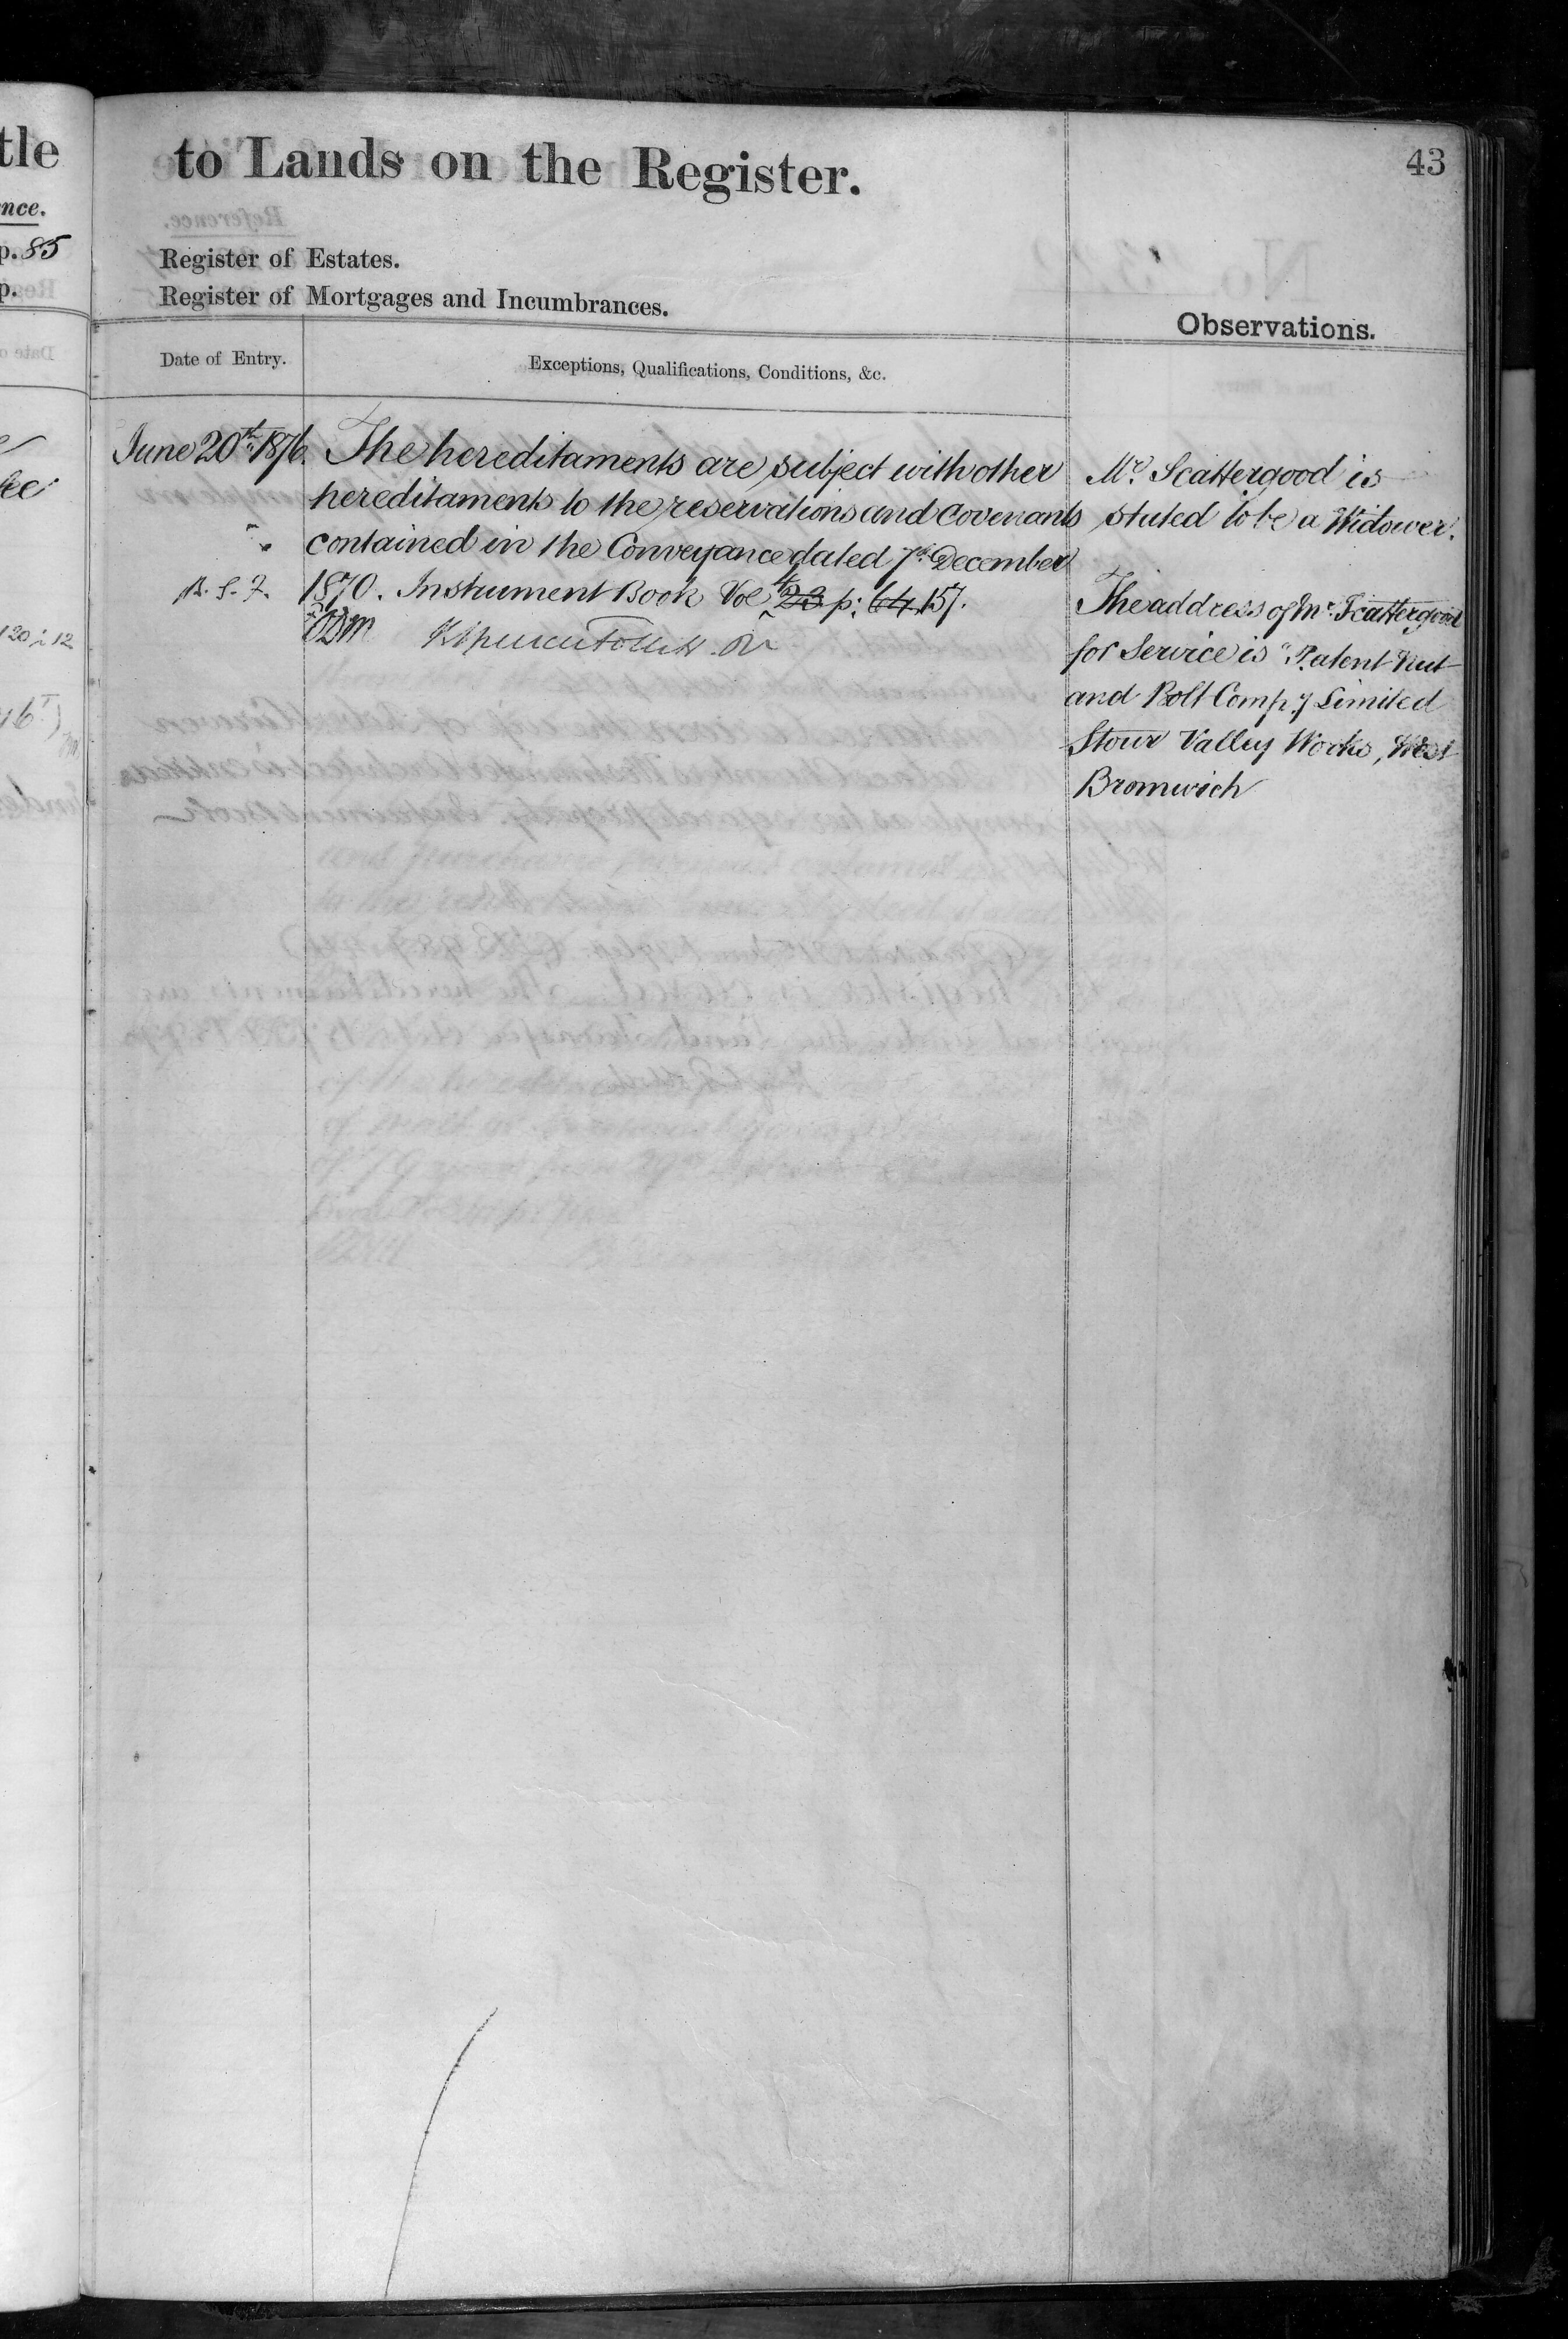 tle
nce.
p. 85
p.
to Lands on the Register.
43
Register of Estates.
Register of Mortgages and Incumbrances.
Observations.
Date of Entry.
Exceptions, Qualifications, Conditions, &c.
June 20th 1876. The hereditaments are subject with other
hereditaments to the reservations and covenants
contained in the Conveyance dated 7th December
R. S. F. 1870. Instrument Book Vol 4 23 p: 64 157.
Mr. Scattergood is
stated to be a Widower.
The address of Mr. Scattergood
for Service is "Patent Nut
and Bolt Compy Limited
Stour Valley Works, West
Bromwich